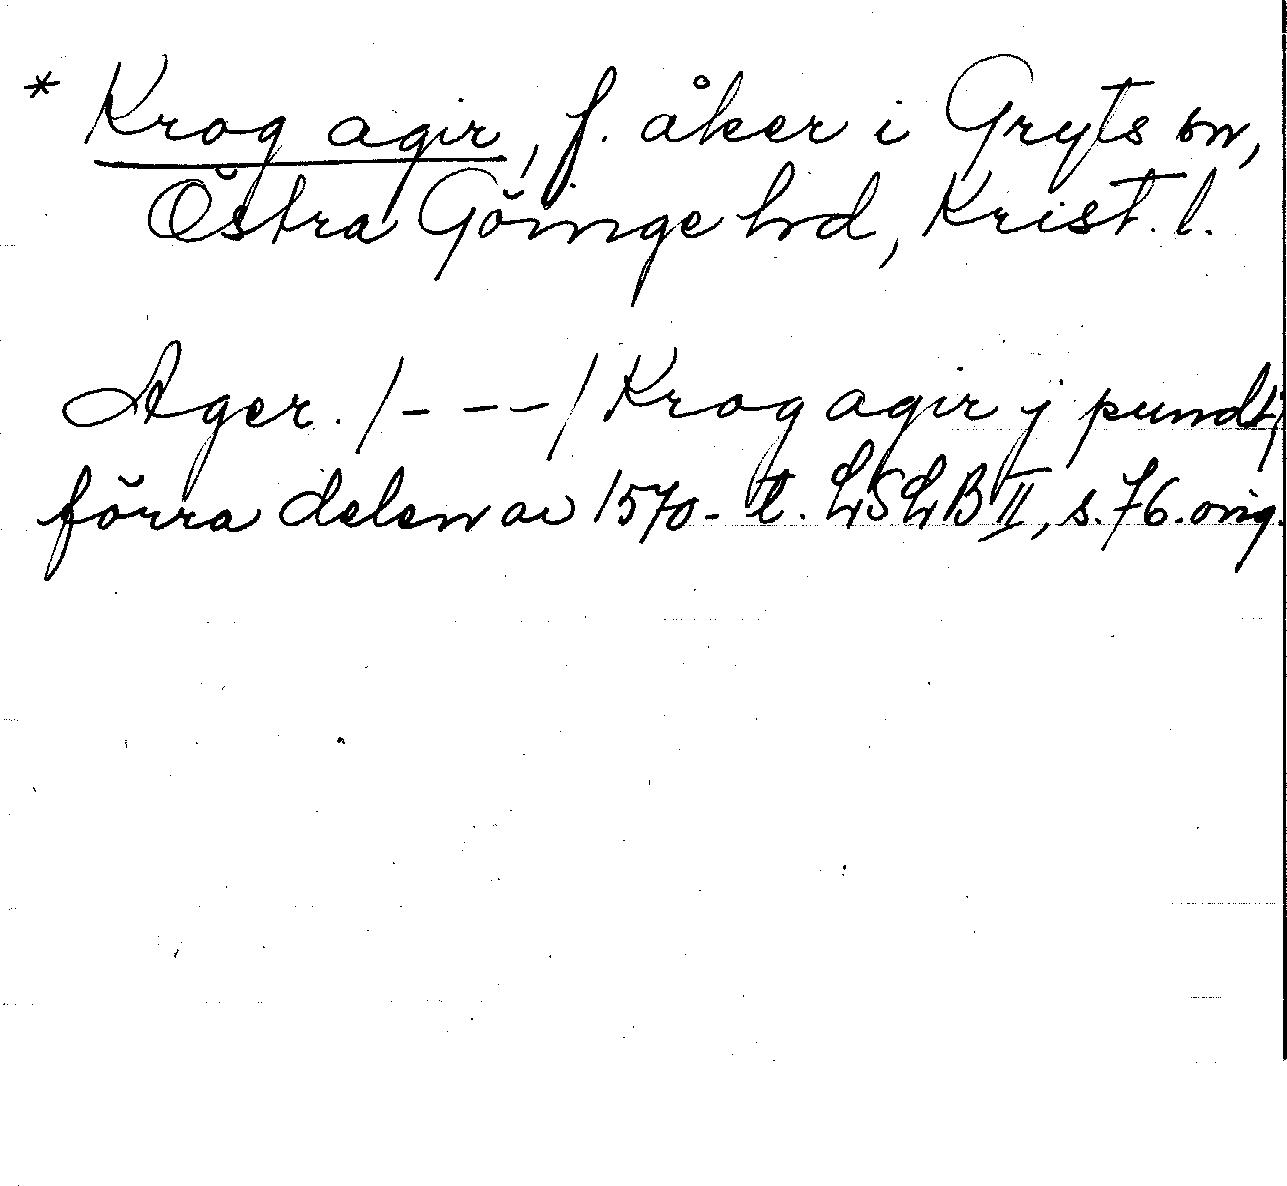 * Krog agir, f. åker i Gryts sn,
Östra Göinge hd, Krist. l.
Ager. /- - -/ Krog agir j pundt;
förra delen av 1570-t. LSLB II, s. 76. orig.